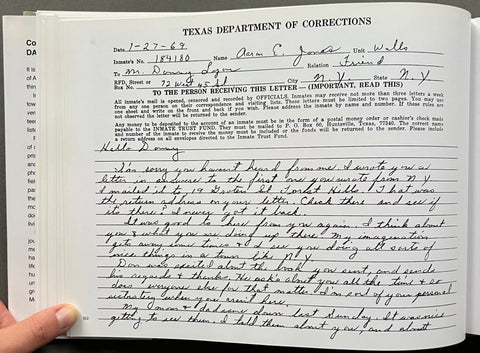 TEXAS DEPARTMENT OF CORRECTIONS
Date 1-27-69
Inmate's No. 184180 Name Aaron E. Jones Unit Walls
To Mr. Danny Lyon Relation Friend
RFD, Street or Box No. 72 West 45 St City N.Y. State N.Y
TO THE PERSON RECEIVING THIS LETTER—(IMPORTANT, READ THIS)
All inmate's mail is opened, censored and recorded by OFFICIALS. Inmates may receive not more than three letters a week
from any one person on their correspondence and visiting lists. These letters must be limited to two pages. You may use
one sheet and write on the front and back if you wish. Please address the inmate by name and number. If these rules are
not observed the letter will be returned to the sender.
Any money to be deposited to the account of an inmate must be in the form of a postal money order or cashier's check made
payable to the INMATE TRUST FUND. They must be mailed to P. O. Box 60, Huntsville, Texas, 77340. The correct name
and number of the inmate to receive the money must be included or the funds will be returned to the sender. Please include
a return address on all envelopes directed to the Inmate Trust Fund.
Hello Danny
I'm sorry you havent heard from me. I wrote you a
letter in answere to the first one you wrote from N.Y
I mailed it to, 19 Groton St. Forest Hills. That was
the return address on your letter. Check there and see if
its there? I never got it back.
It was good to hear from you again. I think about
you & what you are doing up there. My imagination
gets away some times & I see you doing all sorts of
nice things in a town like N.Y.
Don was excited about the book you sent, and sends
his regards & thanks. He ask's about you all the time & so
does everyone else for that matter. I'm sort of your personal
secratary when you aren't here.
My mom & dad came down last Sunday. It was nice
getting to see them. I told them about you, and about
80